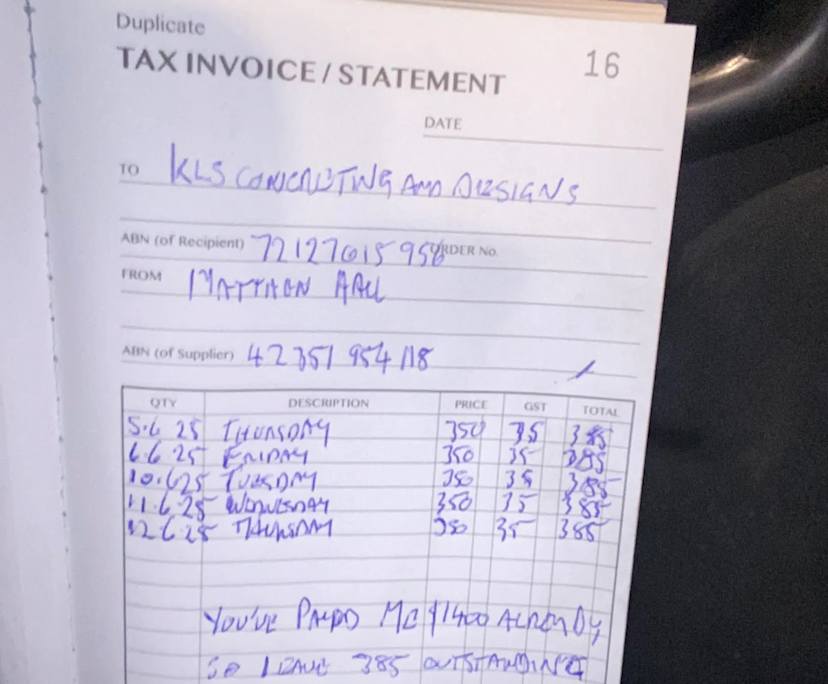 Duplicate
TAX INVOICE / STATEMENT 16
DATE
TO KLS CONCRETING AND DESIGNS
ABN (of Recipient) 72127615 958 ORDER No.
FROM MATTHEW HALL
ABN (of Supplier) 42351 954 118
QTY DESCRIPTION PRICE GST TOTAL
5.6 25 THURSDAY 350 35 385
6.6 25 FRIDAY 350 35 385
10.6 25 TUESDAY 350 35 385
11.6.25 WEDNESDAY 350 35 385
12.6.25 THURSDAY 350 35 385
YOU'VE PAID ME $1400 ALREADY
SO LEAVE 385 OUTSTANDING